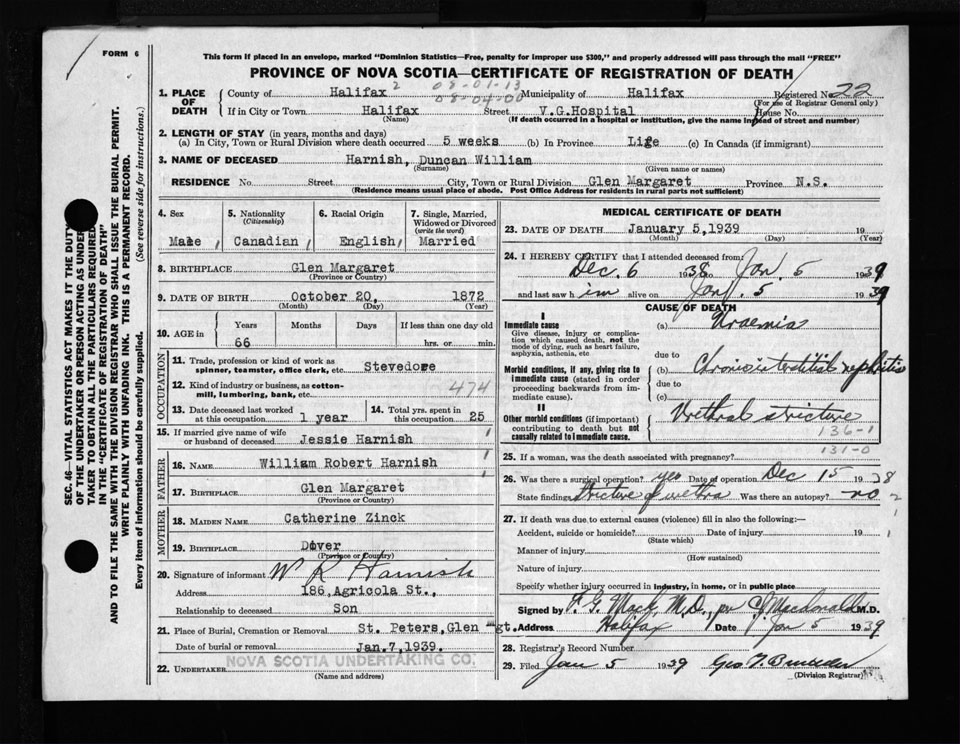 FORM 6
This form if placed in an envelope, marked "Dominion Statistics—Free, penalty for improper use $300," and properly addressed will pass through the mail "FREE"
PROVINCE OF NOVA SCOTIA—CERTIFICATE OF REGISTRATION OF DEATH
1. PLACE OF DEATH County of Halifax 2 08-01-13 Municipality of Halifax Registered No. 22
(For use of Registrar General only)
If in City or Town Halifax 08-04-00 Street V.G.Hospital House No.
(Name) (If death occurred in a hospital or institution, give the name instead of street and number)
2. LENGTH OF STAY (in years, months and days)
(a) In City, Town or Rural Division where death occurred 5 weeks (b) In Province Life (c) In Canada (if immigrant)
3. NAME OF DECEASED Harnish, Duncan William
(Surname) (Given name or names)
RESIDENCE No. Street City, Town or Rural Division Glen Margaret Province N.S.
(Residence means usual place of abode. Post Office Address for residents in rural parts not sufficient)
4. Sex 5. Nationality (Citizenship) 6. Racial Origin 7. Single, Married, Widowed or Divorced (write the word)
Male Canadian English Married
8. BIRTHPLACE Glen Margaret
(Province or Country)
9. DATE OF BIRTH October 20, 1872
(Month) (Day) (Year)
10. AGE in Years Months Days If less than one day old
66 hrs. or min.
OCCUPATION
11. Trade, profession or kind of work as spinner, teamster, office clerk, etc. Stevedore
12. Kind of industry or business, as cotton-mill, lumbering, bank, etc. 474
13. Date deceased last worked at this occupation 1 year 14. Total yrs. spent in this occupation 25
15. If married give name of wife or husband of deceased Jessie Harnish
FATHER
16. NAME William Robert Harnish
17. BIRTHPLACE Glen Margaret
(Province or Country)
MOTHER
18. MAIDEN NAME Catherine Zinck
19. BIRTHPLACE Dover
(Province or Country)
20. Signature of informant W R Harnish
Address 186, Agricola St.,
Relationship to deceased Son
21. Place of Burial, Cremation or Removal St. Peters, Glen Mgt.
Date of burial or removal Jan.7,1939.
22. UNDERTAKER NOVA SCOTIA UNDERTAKING CO.
(Name and address)
MEDICAL CERTIFICATE OF DEATH
23. DATE OF DEATH January 5,1939 19
(Month) (Day) (Year)
24. I HEREBY CERTIFY that I attended deceased from:
Dec. 6 1938 to Jan. 5 1939
and last saw him alive on Jan. 5 1939
CAUSE OF DEATH
I
Immediate cause (a) Uraemia
Give disease, injury or complication which caused death, not the mode of dying, such as heart failure, asphyxia, asthenia, etc
due to
Morbid conditions, if any, giving rise to immediate cause (stated in order proceeding backwards from immediate cause). (b) Chronic interstitial nephritis
due to
(c)
II
Other morbid conditions (if important) contributing to death but not causally related to immediate cause. Urethral stricture
136-1
131-0
25. If a woman, was the death associated with pregnancy?
26. Was there a surgical operation? yes Date of operation Dec 15 1938
State findings Stricture of urethra Was there an autopsy? no 2
27. If death was due to external causes (violence) fill in also the following:—
Accident, suicide or homicide? Date of injury 19
(State which)
Manner of injury
(How sustained)
Nature of injury
Specify whether injury occurred in industry, in home, or in public place
Signed by F. G. Mack, M.D., per C J Macdonald M.D.
Address Halifax Date Jan 5 1939
28. Registrar's Record Number
29. Filed Jan 5 1939 Geo. T.
(Division Registrar)
SEC. 46—VITAL STATISTICS ACT MAKES IT THE DUTY
OF THE UNDERTAKER OR PERSON ACTING AS UNDERTAKER TO OBTAIN ALL THE PARTICULARS REQUIRED
IN THE "CERTIFICATE OF REGISTRATION OF DEATH"
AND TO FILE THE SAME WITH THE DIVISION REGISTRAR WHO SHALL ISSUE THE BURIAL PERMIT.
WRITE PLAINLY WITH UNFADING INK. THIS IS A PERMANENT RECORD.
Every item of information should be carefully supplied. (See reverse side for instructions.)